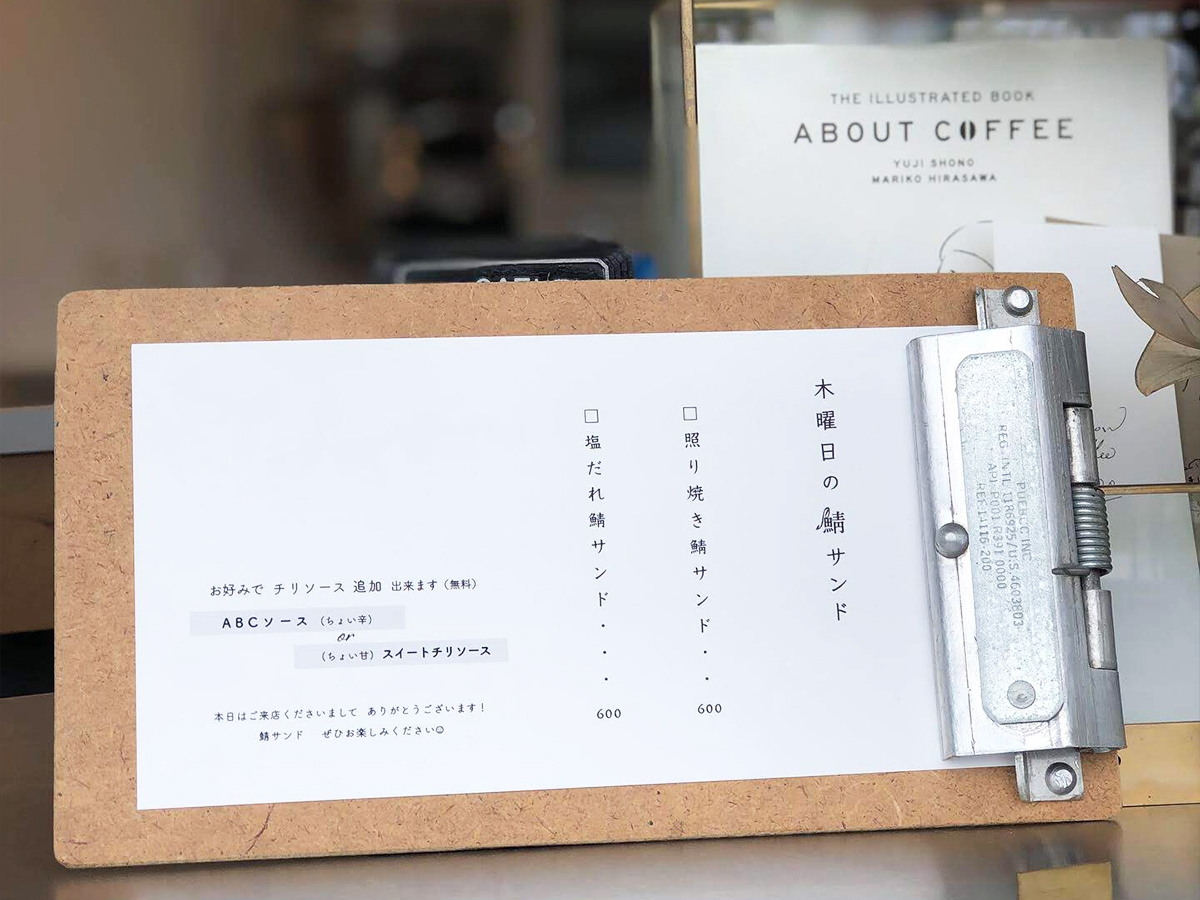 THE ILLUSTRATED BOOK
ABOUT COFFEE
YUJI SHONO
MARIKO HIRASAWA
木曜日の鯖サンド
□照り焼き鯖サンド・・・600
□塩だれ鯖サンド・・・600
お好みで チリソース 追加 出来ます（無料）
ABCソース （ちょい辛）
or
（ちょい甘）スイートチリソース
本日はご来店くださいまして ありがとうございます！
鯖サンド ぜひお楽しみください☺
PUEBCO INC
REG INTL 1186925/U.S. 4603803